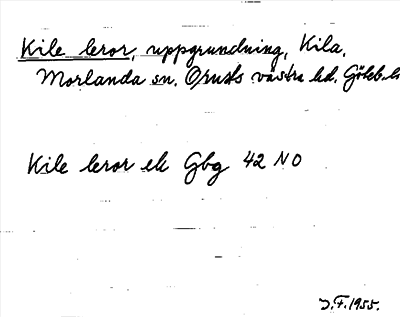 Kile leror, uppgrundning, Kila,
Morlanda sn. Orusts västra hd. Göteb. l
Kile leror ek Gbg 42 NO
J.F. 1955.